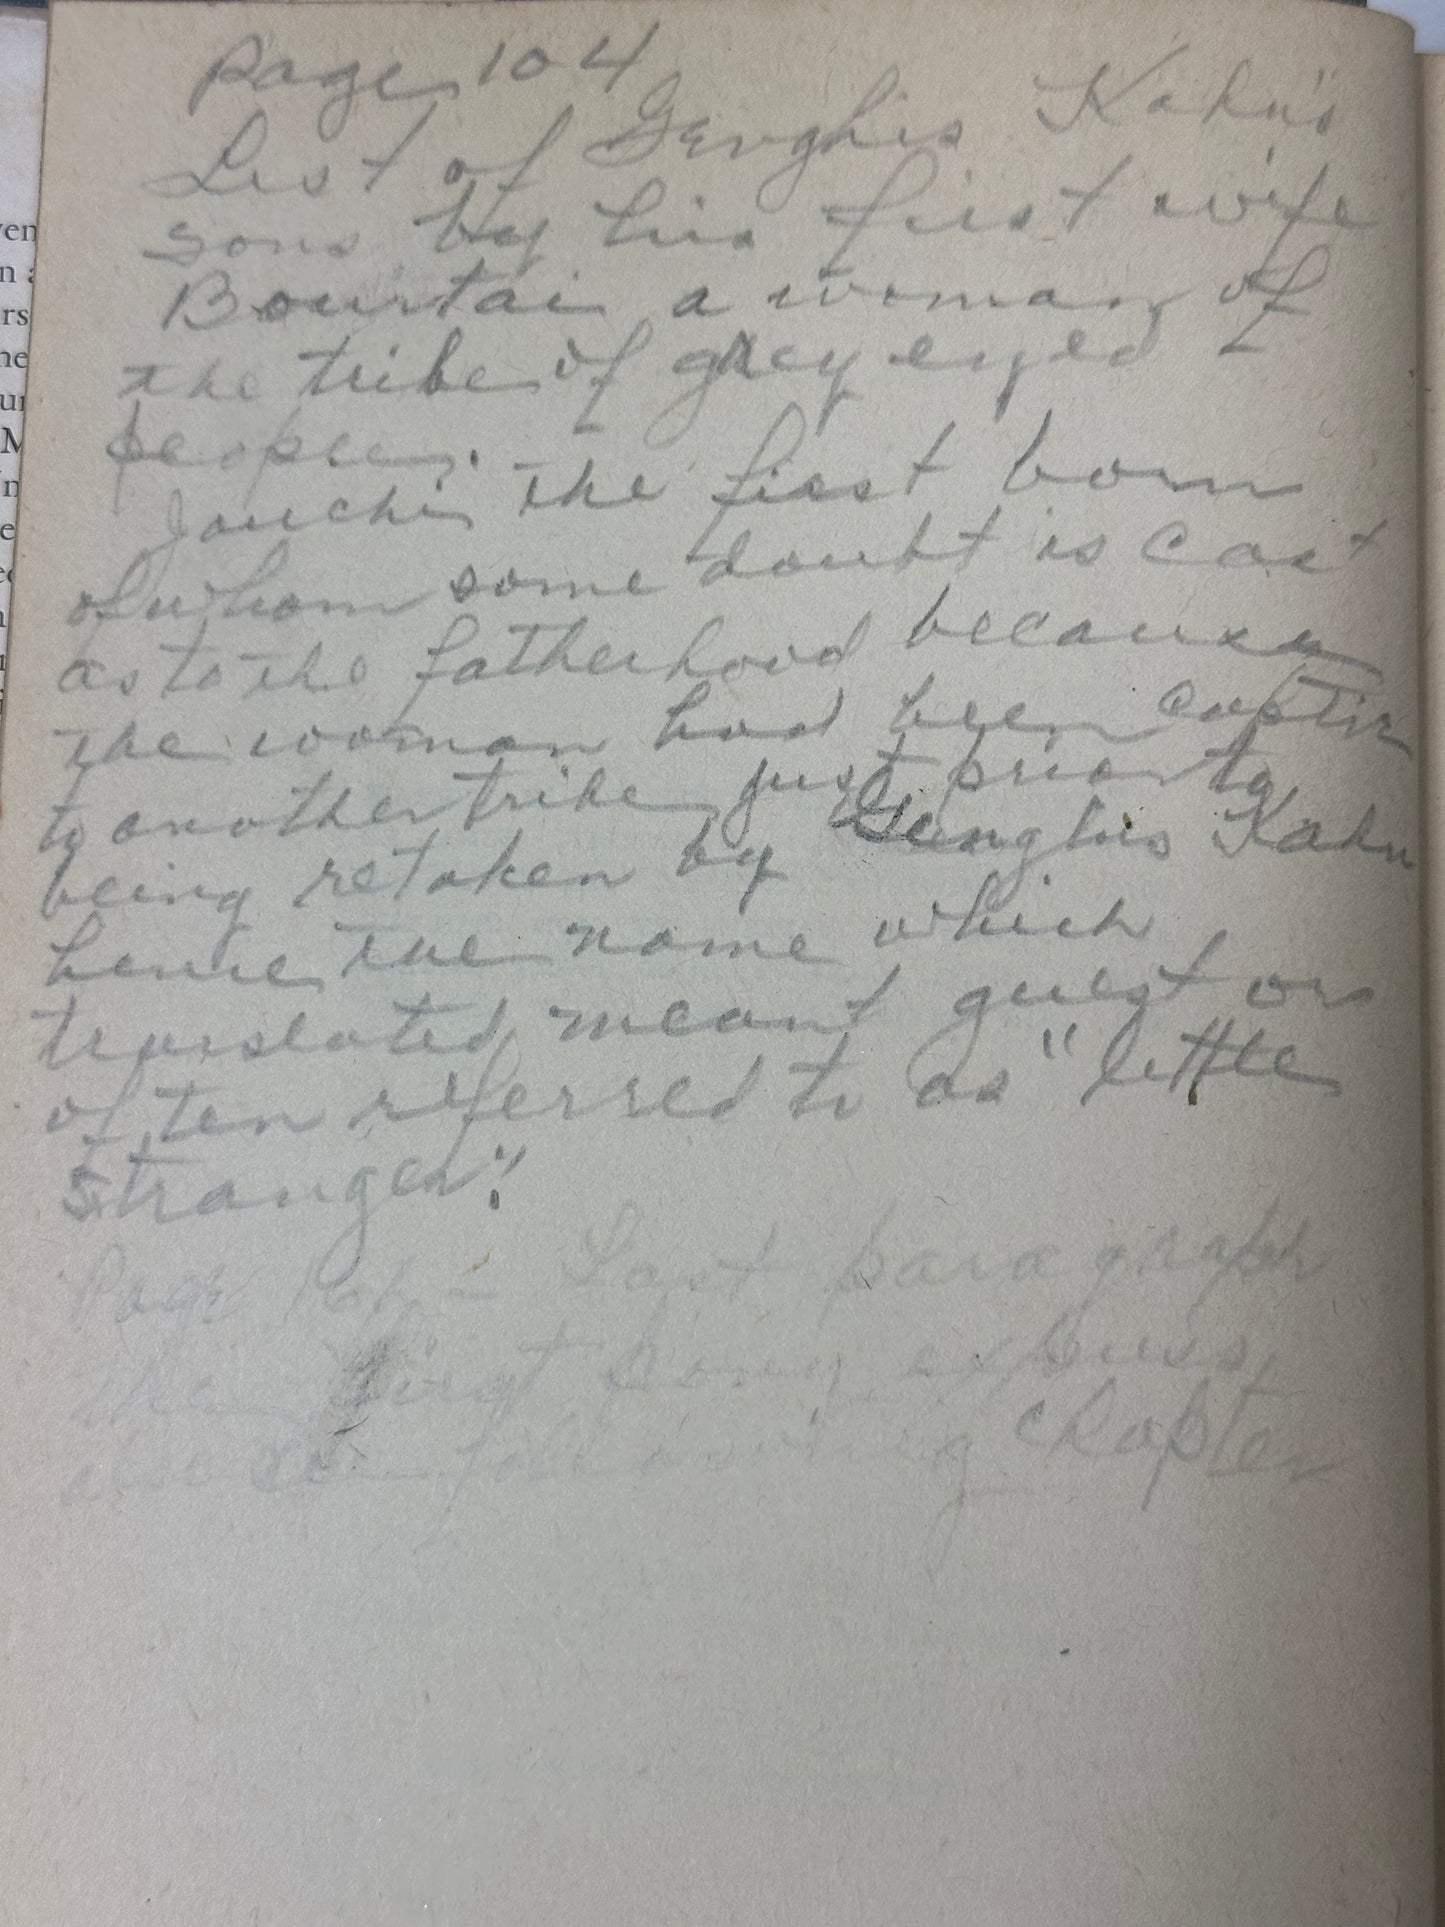 Page 104
List of Genghis Kahn's
sons by his first wife
Bourtai a woman of
the tribe of grey eyed
people.
Jouchi the first born
of whom some doubt is cast
as to the fatherhood because
the woman had been captive
to another tribe just prior to
being retaken by Genghis Kahn
hence the name which
translated meant guest or
often referred to as "little
stranger".
Page – Last paragraph
the first pony express
following chapter